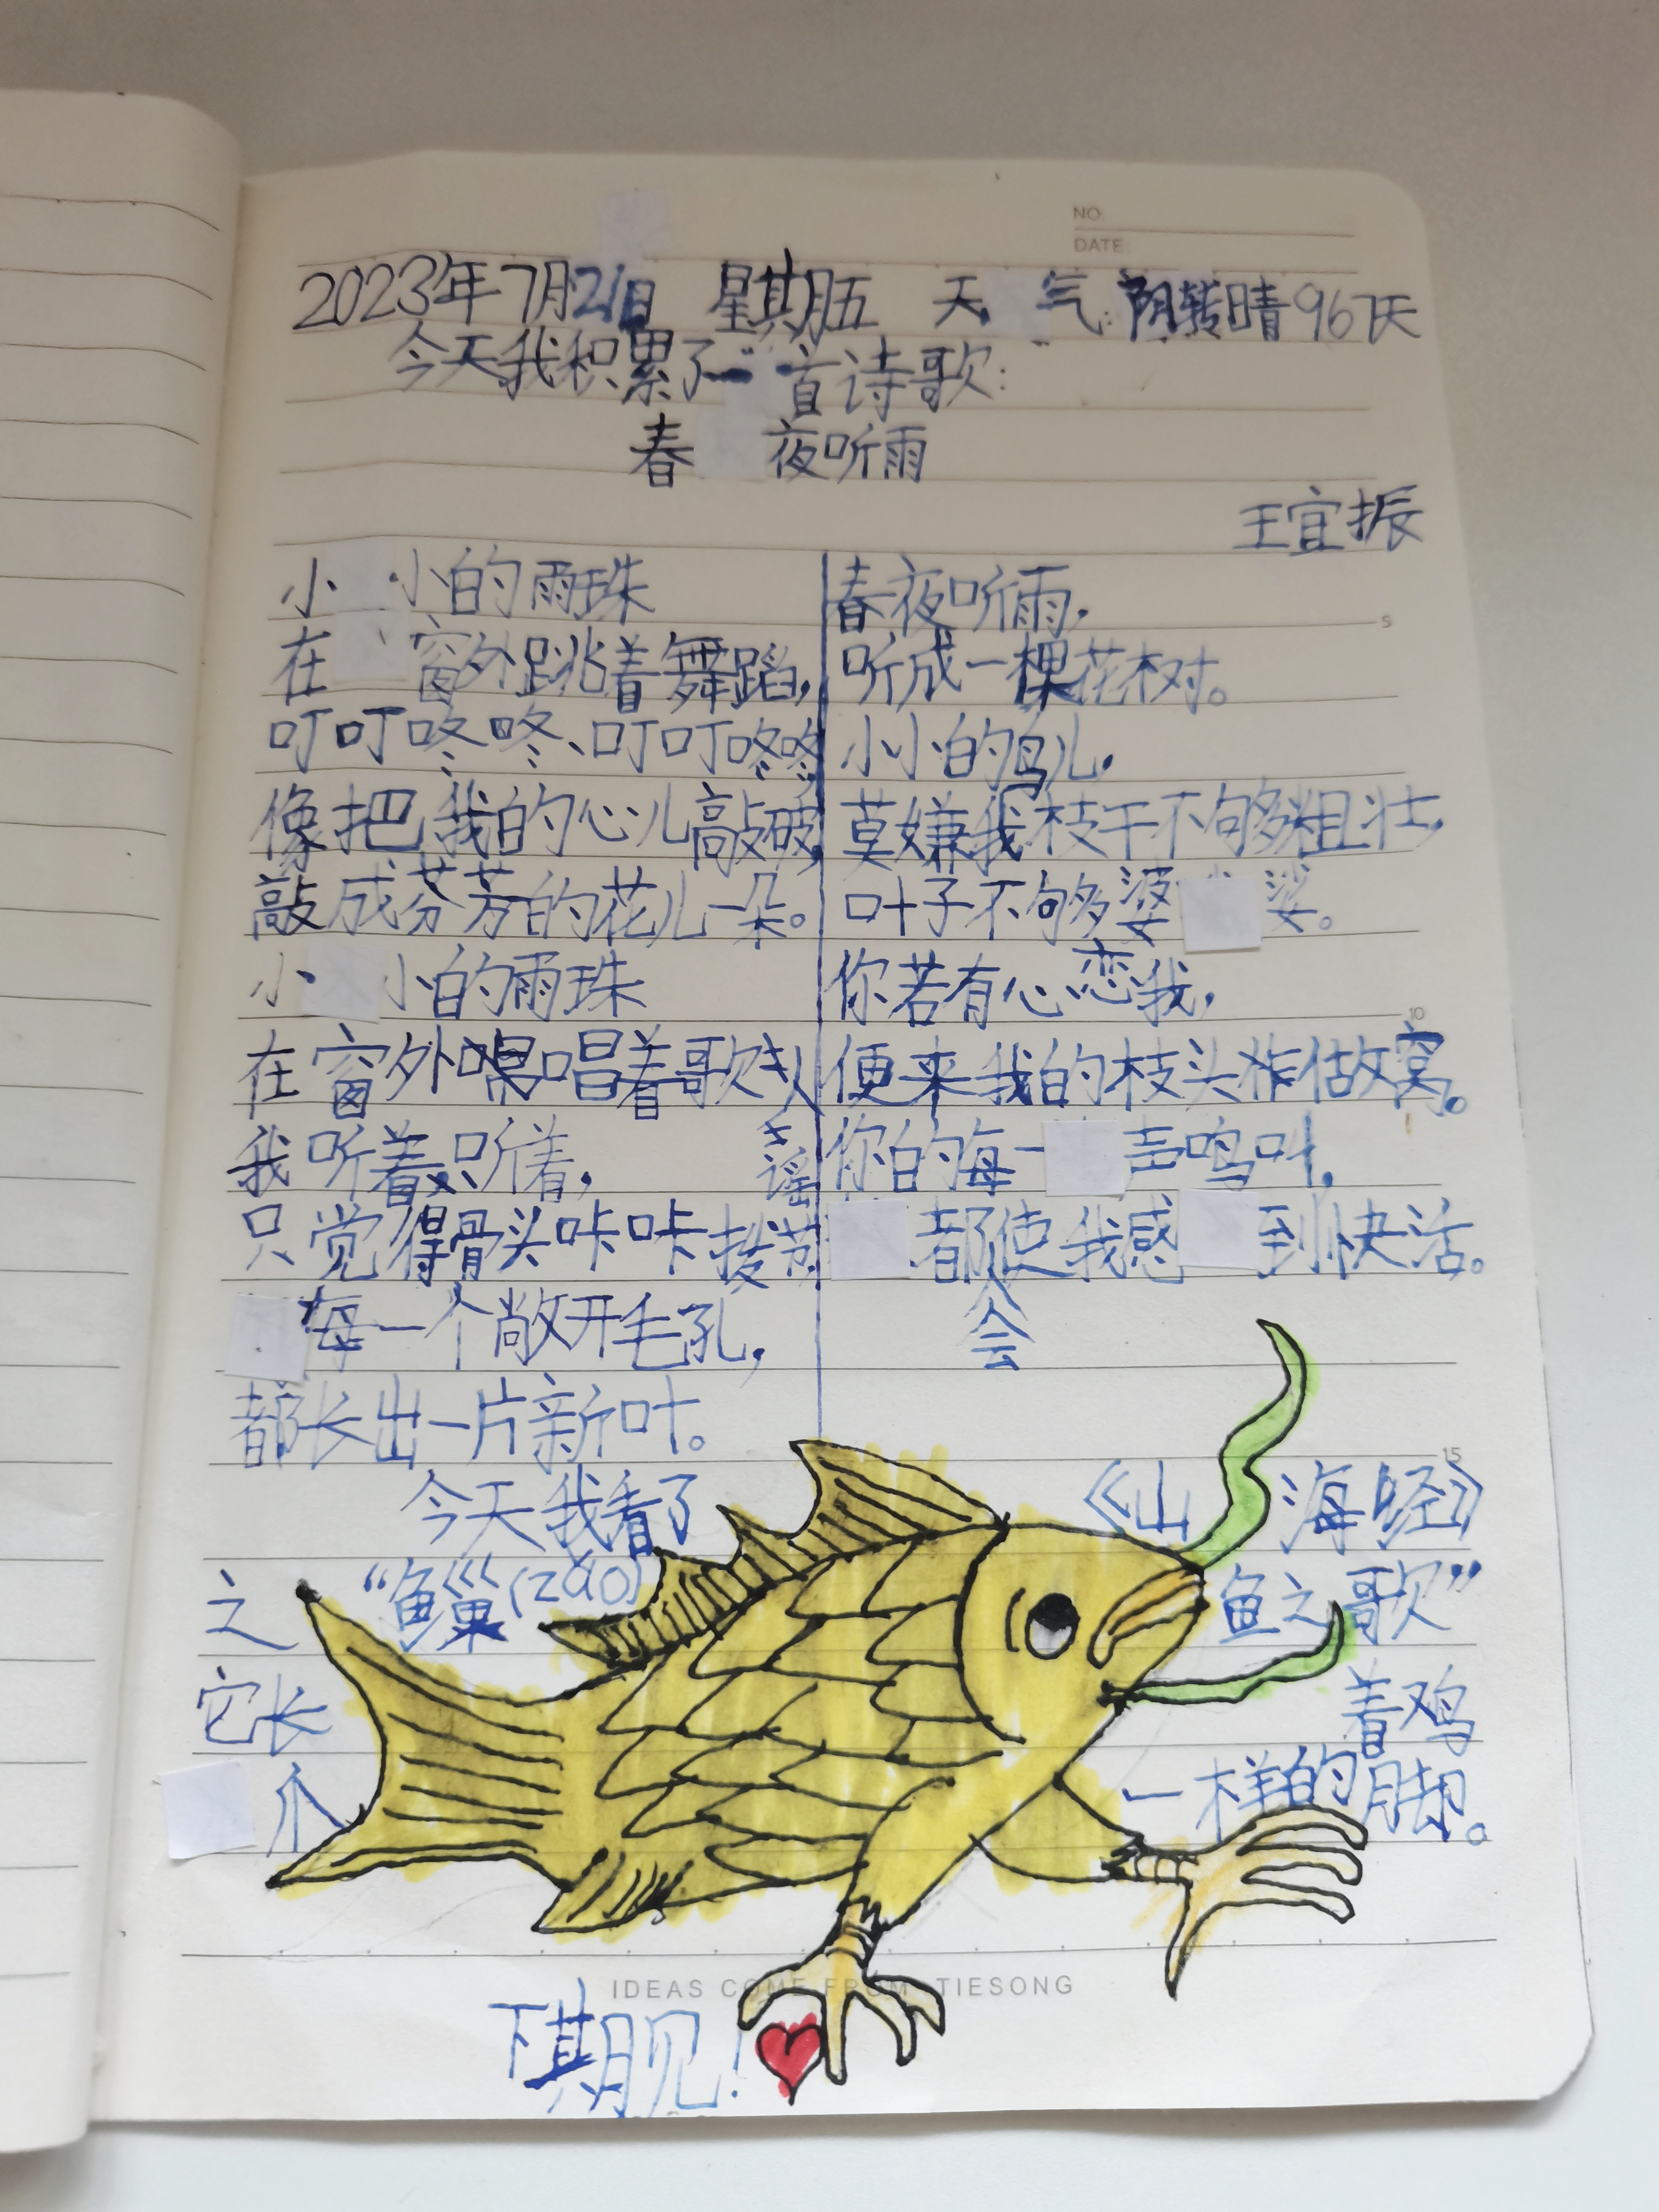 NO:
DATE:
2023年7月21日 星期五 天气:阴转晴 96天
今天我积累了一首诗歌:
春夜听雨
王宜振
小小的雨珠
在窗外跳着舞蹈,
叮叮咚咚、叮叮咚咚
像把我的心儿敲破,
敲成芬芳的花儿一朵。
小小的雨珠
在窗外唱着歌
谣
我听着,听着,
只觉得骨头咔咔拨节,
每一个敞开毛孔,
都长出一片新叶。
春夜听雨,
听成一棵花树。
小小的鸟儿,
莫嫌我枝干不够粗壮,
叶子不够婆娑。
你若有心恋我,
便来我的枝头做窝。
你的每一声鸣叫,
都会使我感到快活。
5
10
15
今天我看了《山海经》
之“鱼巢(zao)鱼之歌”
它长着鸡
爪一样的脚。
IDEAS COME FROM TIESONG
下期见!